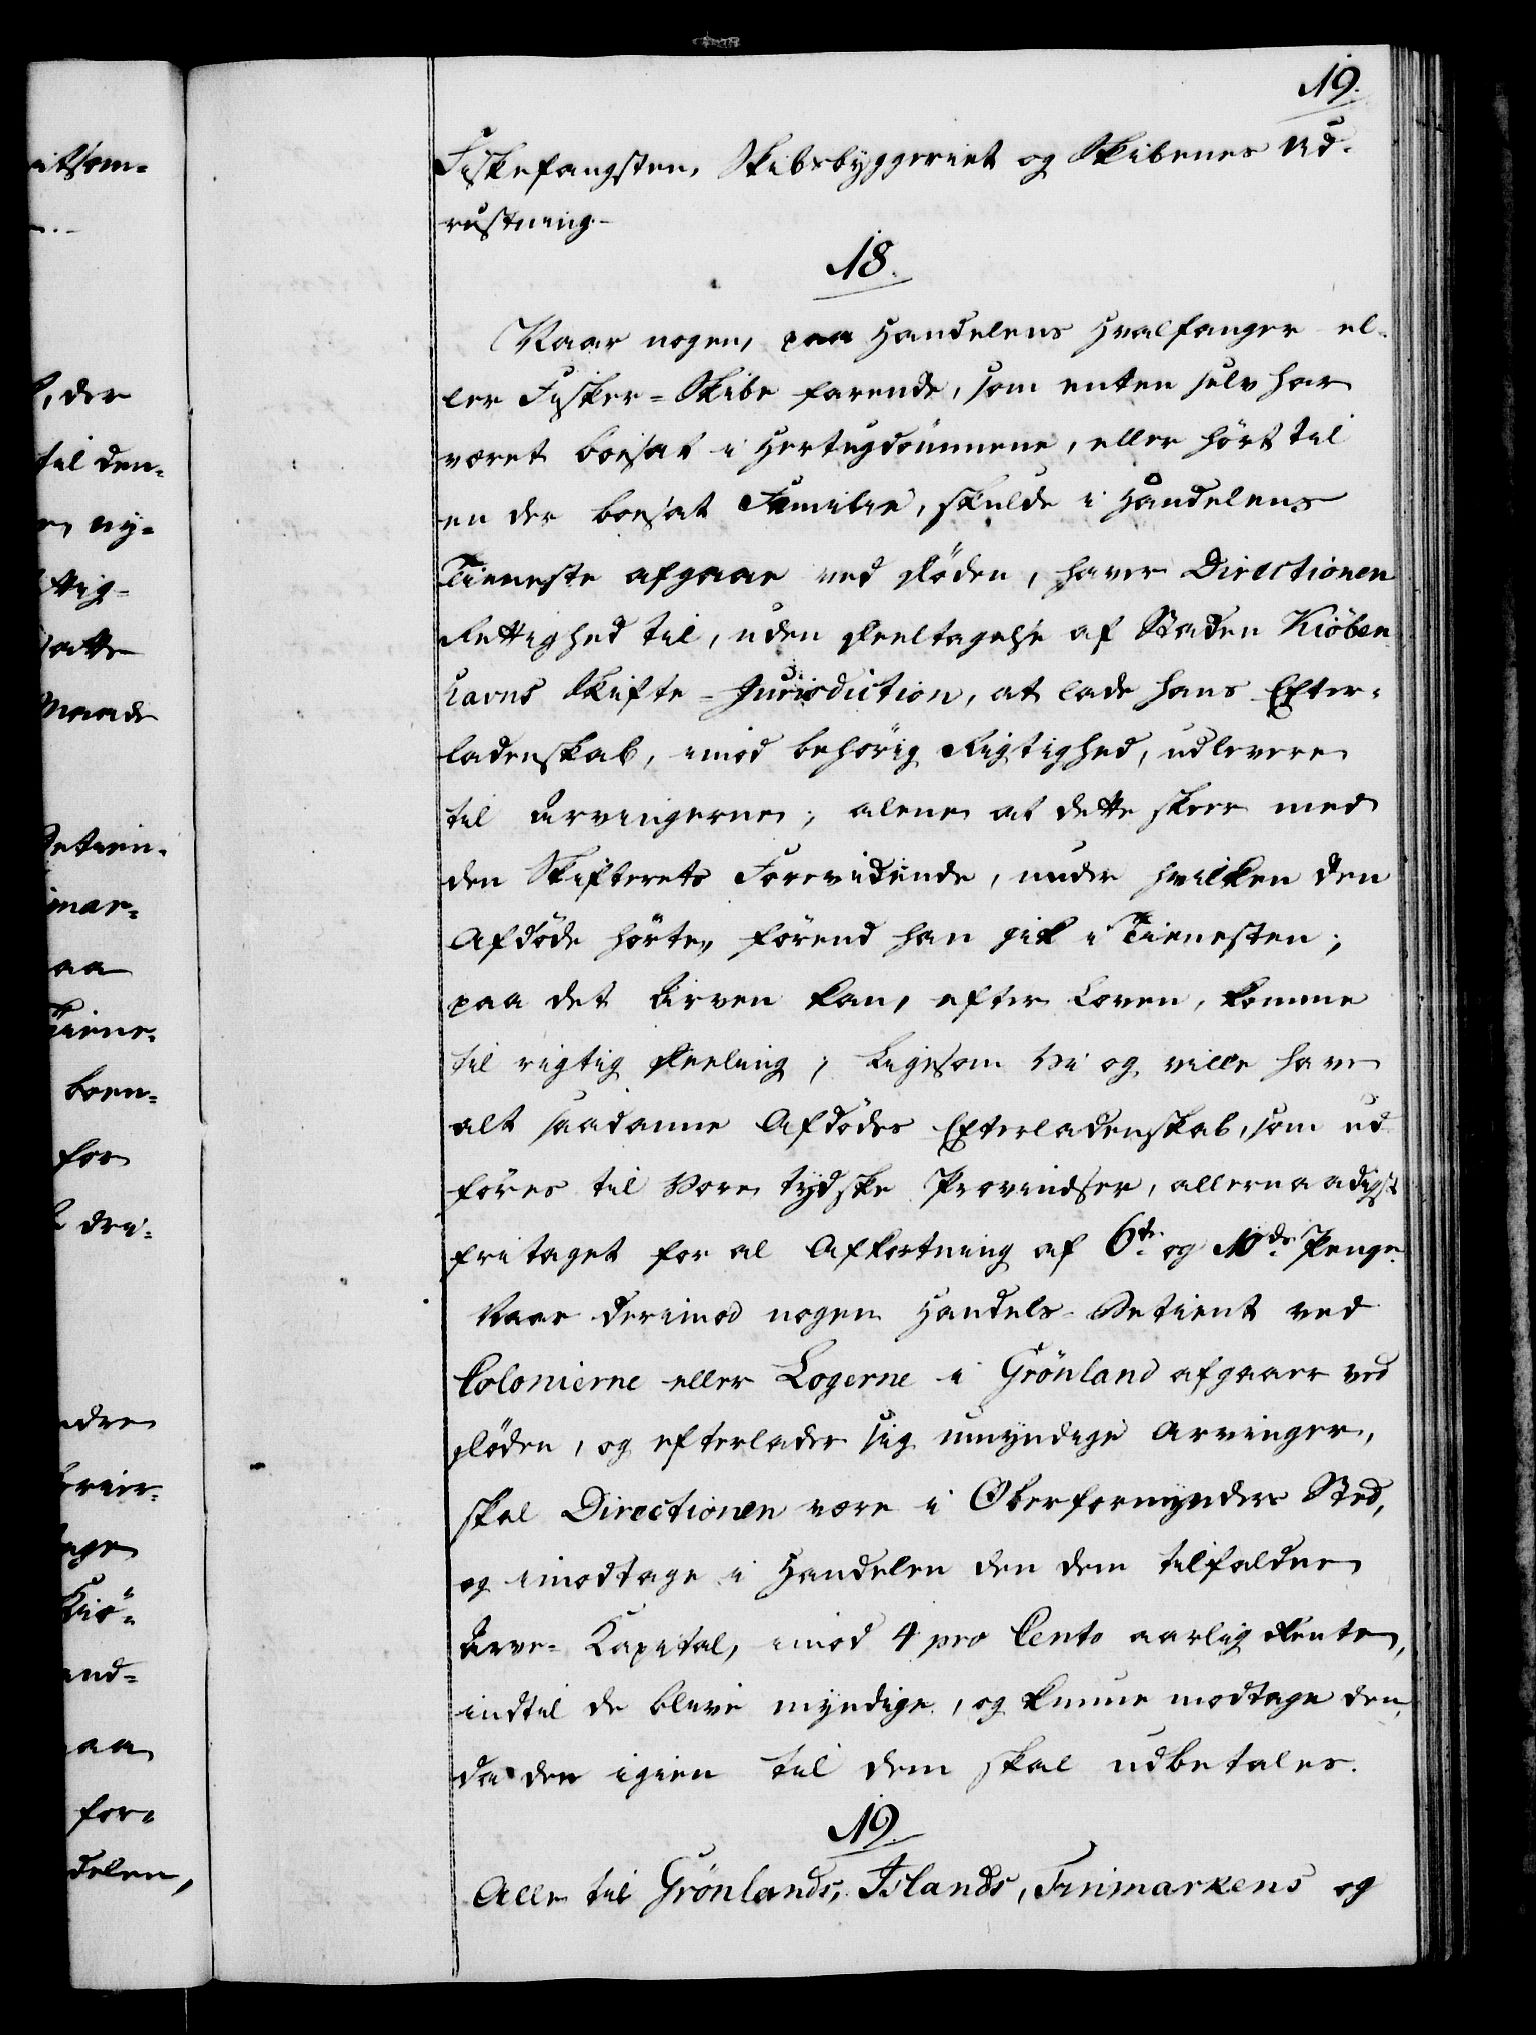 19.
Fiskefangsten, Skibsbyggeriet og Skibenes Ud-
rustning.
18.
Naar nogen, paa Handelens Hvalfanger el-
ler Fisker-Skibe farende, som enten selv har
været boesat i Hertugdømmene, eller hört til
en der boesat Familie, skulde i Handelens
Tieneste afgaae ved Döden, haver Directionen
Rettighed til, uden Deeltagelse af Staden Kiöben-
havns Skifte-Jurisdiction, at lade hans Efter-
ladenskab, imod behörig Rigtighed, udlevere
til Arvingerne; alene at dette skeer med
den Skifterets Forevidende, under hvilken den
Afdöde hörte, förend han gik i Tienesten;
paa det Arven kan, efter Loven, komme
til rigtig Deeling; ligesom Vi og ville have
alt saadanne Afdödes Efterladenskab, som ud
föres til Vore tydske Provindser, allernaadigst
fritaget for al Afkortning af 6te og 10de Penge.
Naar derimod nogen Handels-Betient ved
Colonierne eller Logerne i Grönland afgaaer ved
Döden, og efterlader sig umyndige Arvinger,
skal Directionen være i Oberformynders Sted,
og imodtage i Handelen den dem tilfaldne
Arve-Kapital, imod 4 pro Cento aarlig Rente,
indtil de blive myndige, og kunne modtage den,
da den igien til dem skal udbetales.
19.
Alle til Grönlands, Islands, Finmarkens og
itsom-
, der
til den-
ny-
ttig-
satte
Maade
Betien-
mar-
aa
Tiene-
boen-
for
dri-
ndre
age
Kiö-
and-
aa
for-
delen,